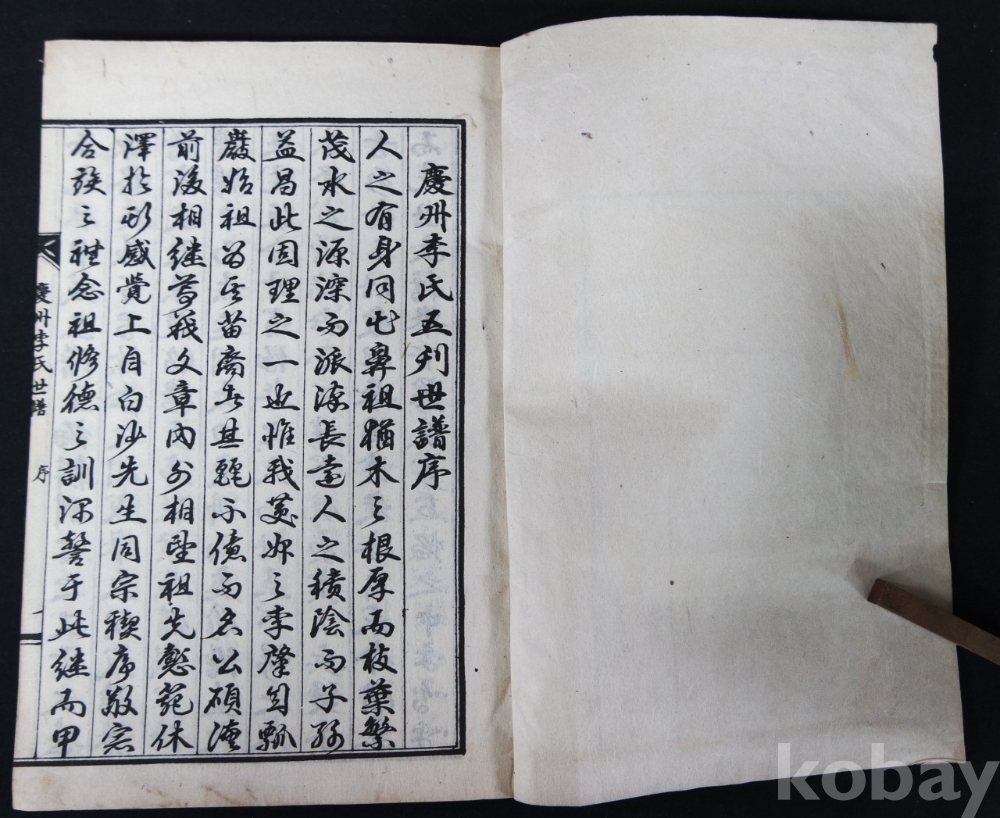 慶州李氏五刋世譜序
人之有身同出鼻祖猶木之根厚而枝葉繁
茂水之源深而派流長遠人之積陰而子孫
益昌此固理之一也惟我慶州之李肇自瓢
巖始祖爲其苗裔者其麗不億而名公碩
前後相繼勳業文章內外相望祖先懿範休
澤於形感覺上自白沙先生同宗稧序敬宗
合族之禮念祖修德之訓深誓于此継而甲
慶州李氏世譜
序
一
kobay